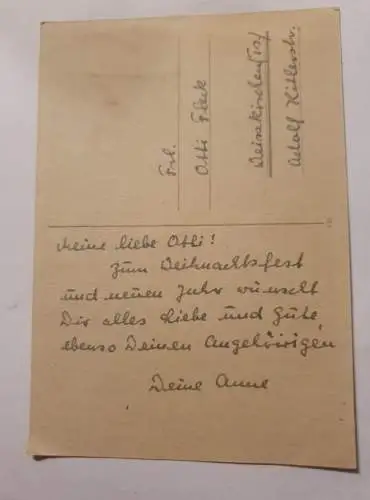 Meine liebe Otti!
Zum Weihnachtsfest
und neuen Jahr wünscht
Dir alles Liebe und Gute,
ebenso Deinen Angehörigen
Deine Anne
Frl.
Otti Fleck
Weisskirchen (Ts)
Adolf Hitlerstr.